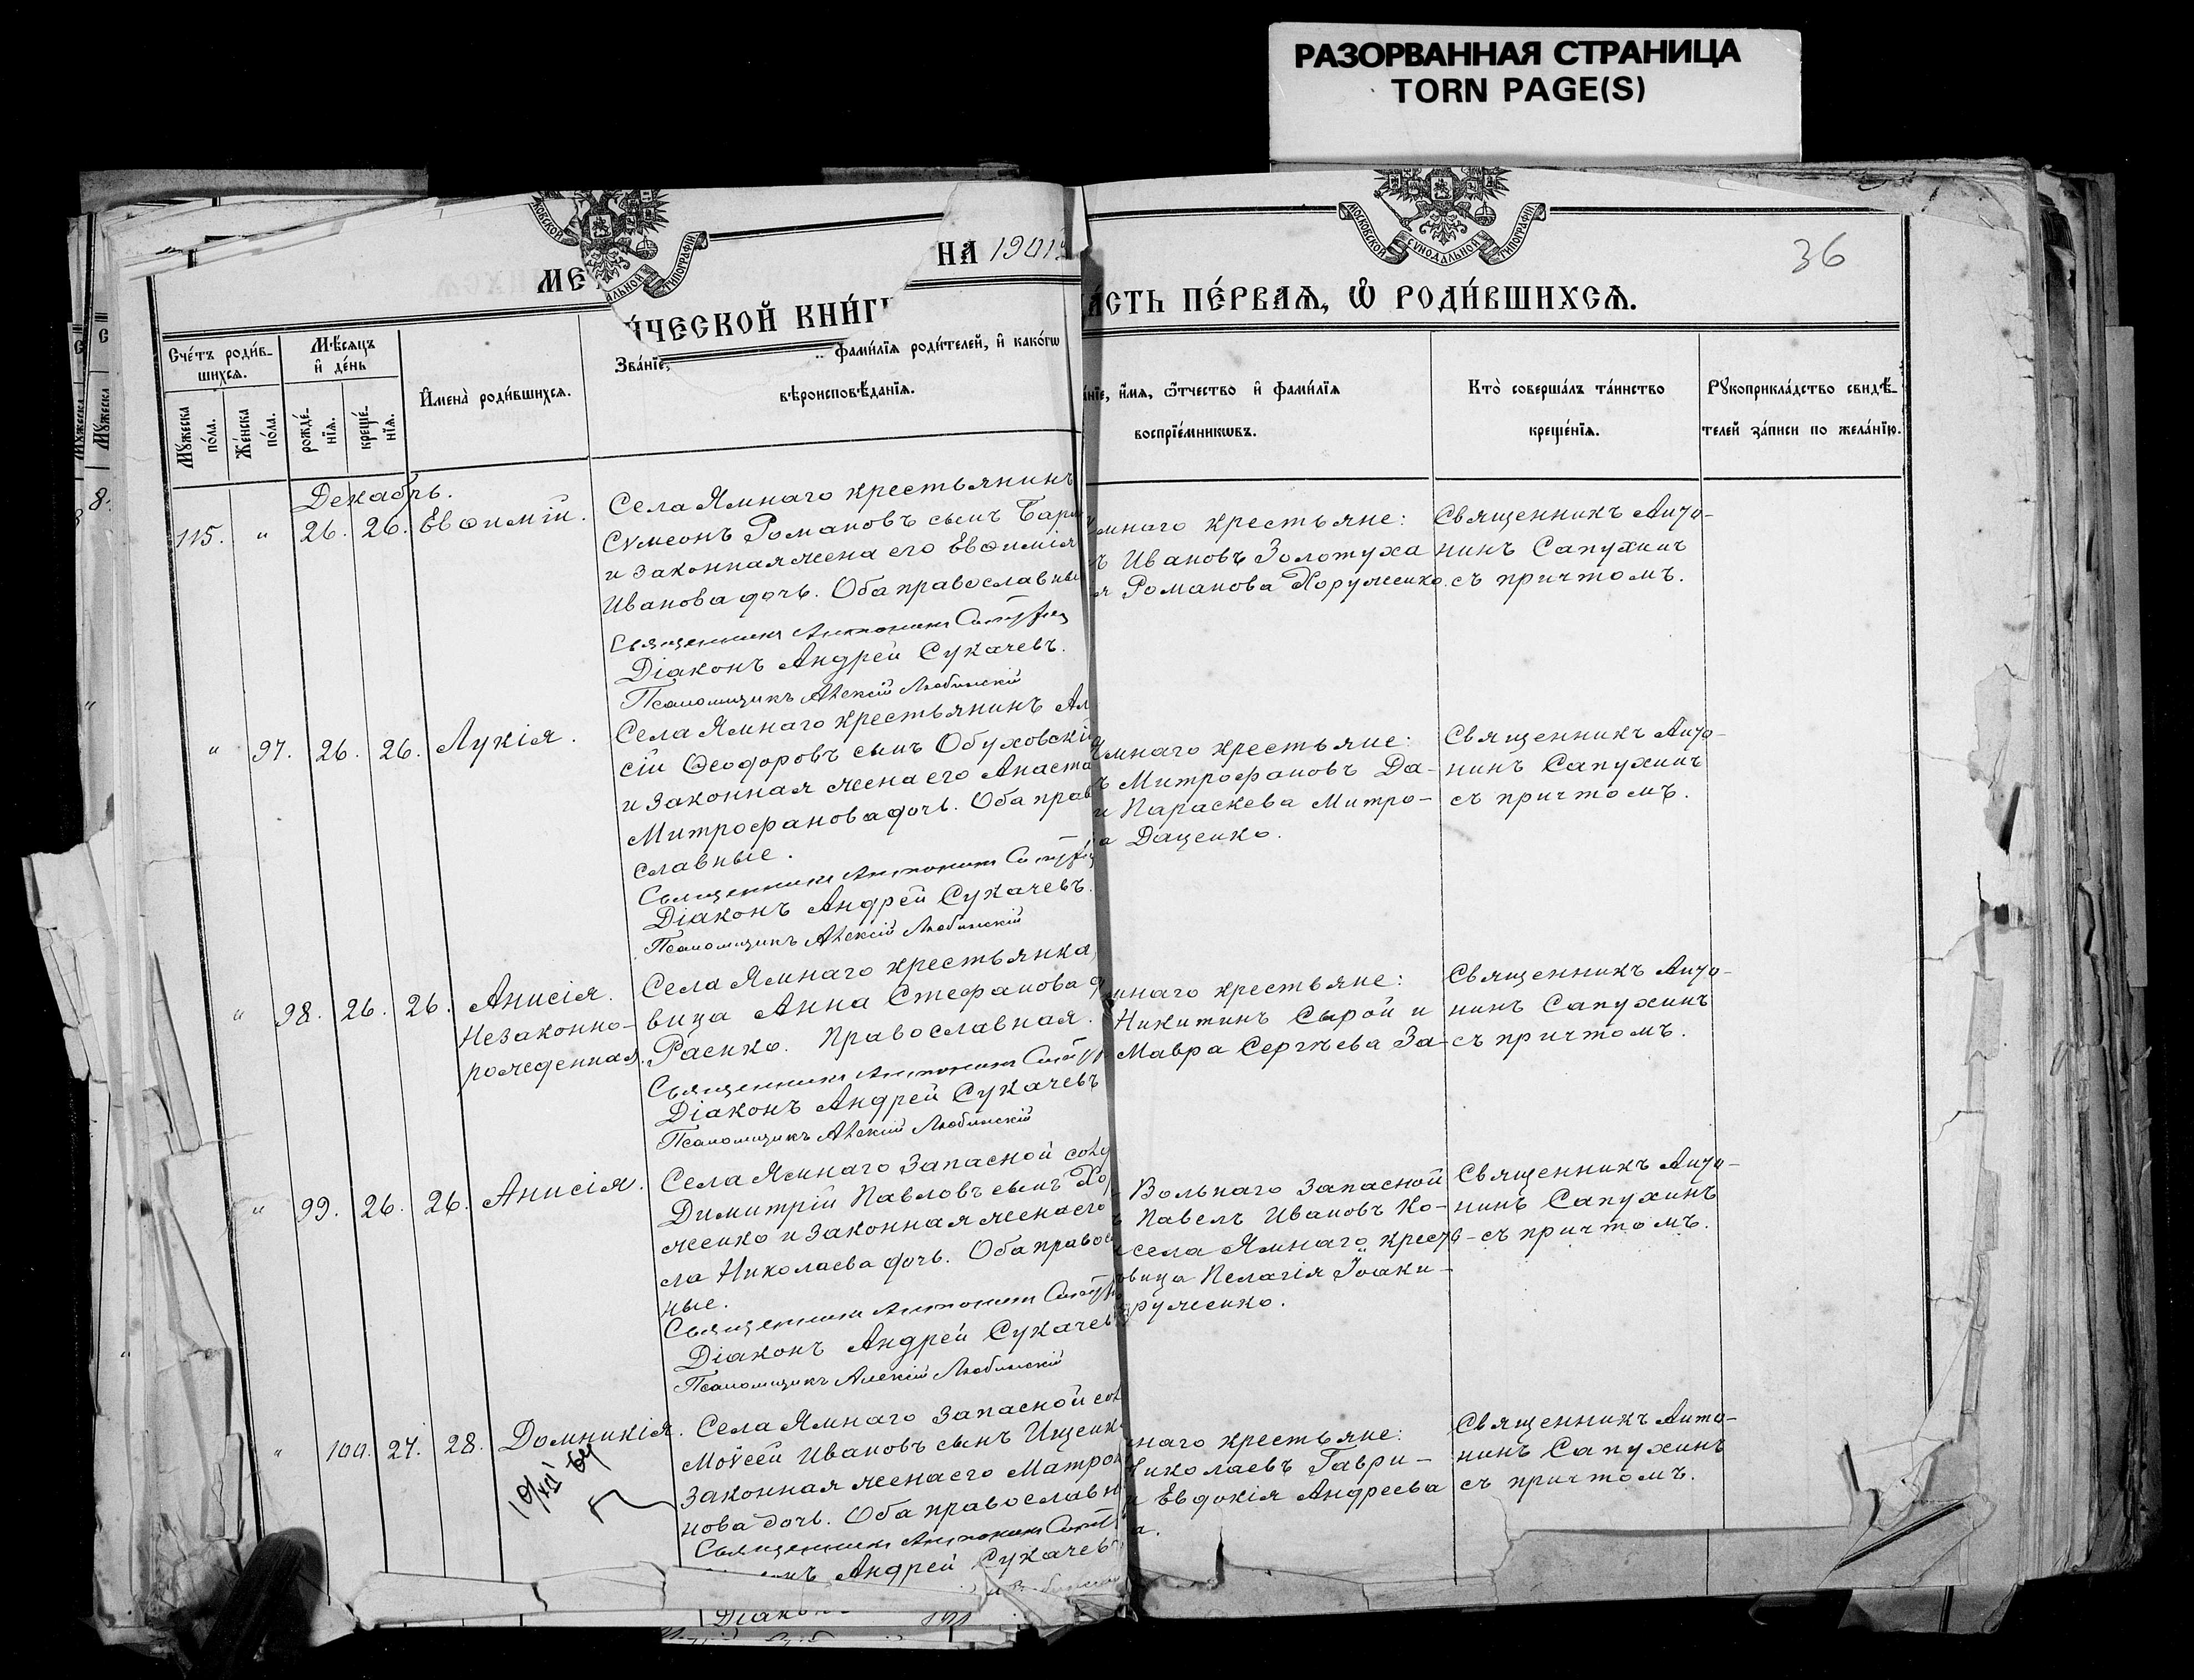 РАЗОРВАННАЯ СТРАНИЦА
TORN PAGE(S)
МОСКОВСКОЙ СѴНОДАЛЬНОЙ ТИПОГРАФІИ
36
МЕ
НА 1901
И́ЧЕСКОЙ КНИ́Г
А́СТЬ ПЕ́РВАѦ, Ѡ҆ РОДИ́ВШИХСѦ.
Сче́тъ роди́в-
шихсѧ.
Мꙋ́жеска
по́ла.
Же́нска
по́ла.
Мѣ́сѧцъ
и҆ де́нь
рожде́-
нїѧ.
креще́-
нїѧ.
И҆мена̀ роди́вшихсѧ.
Зва́нїе,
фами́лїѧ роди́телей, и҆ како́гѡ
вѣроисповѣ́данїѧ.
а́нїе, и҆́мѧ, ѻ҆́тчество и҆ фами́лїѧ
воспрїе́мникѡвъ.
Кто̀ соверша́лъ та́инство
креще́нїѧ.
Рꙋкоприкла́дство свидѣ́-
телей за́писи по жела́нїю.
Декабрь.
115. " 26. 26. Евѳимій.
Села Ямнаго крестьянинъ
Сѵмеонъ Романовъ сынъ
и законная жена его Евѳимія
Иванова дочь. Оба православные
Священникъ Антонинъ
Діаконъ Андрей Сукачевъ.
Псаломщикъ Алексій Любинскій
мнаго крестьяне:
ъ Ивановъ Золотуха
я Романова Хоруженко.
Священникъ Анто-
нинъ Сапухинъ
съ причтомъ.
" 97. 26. 26. Лукія.
Села Ямнаго крестьянинъ Ал
сій Ѳеодоровъ сынъ Обуховскій
и законная жена его Анаста
Митрофанова дочь. Оба прав
славные.
Священникъ Антонинъ
Діаконъ Андрей Сукачевъ.
Псаломщикъ Алексій Любинскій
мнаго крестьяне:
ъ Митрофановъ Да-
и Параскева Митро-
а Даценко.
Священникъ Анто-
нинъ Сапухинъ
съ причтомъ.
" 98. 26. 26. Анисія.
Незаконно-
рожденная.
Села Ямнаго крестьянка,
вица Анна Стефанова д
Раенко. Православная.
Священникъ Антонинъ
Діаконъ Андрей Сукачевъ
Псаломщикъ Алексій Любинскій
мнаго крестьяне:
Никитинъ Сырой и
Мавра Сергѣева За-
Священникъ Анто-
нинъ Сапухинъ
съ причтомъ.
" 99. 26. 26. Анисія.
Села Ямнаго запасной сол
Димитрій Павловъ сынъ Хор
женко и законная жена его
ла Николаева дочь. Оба правос
ные.
Священникъ Антонинъ
Діаконъ Андрей Сукачев
Псаломщикъ Алексій Любинскій
Вольнаго запасной
ъ Павелъ Ивановъ Ко-
села Ямнаго крестъ-
овица Пелагія Іоаки-
оруженко.
Священникъ Анто-
нинъ Сапухинъ
съ причтомъ.
" 100. 27. 28. Домникія.
10/XII 64
Села Ямнаго запасной сол
Моѵсей Ивановъ сынъ Ищенк
законная жена его Матрон
нова дочь. Оба православн
Священникъ Антонинъ
нъ Андрей Сукачев
Діакон
мнаго крестьяне:
Николаевъ Гаври-
и Евдокія Андреева
а.
Священникъ Анто-
нинъ Сапухинъ
съ причтомъ.